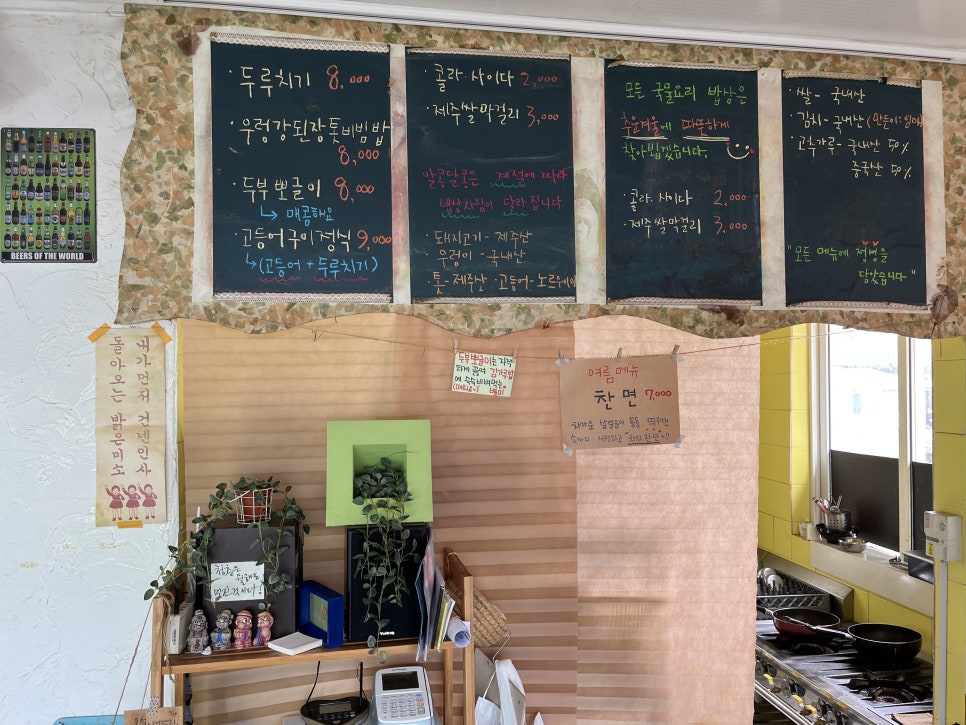 · 두루치기 8,000
· 우렁강된장톳비빔밥
8,000
· 두부뽀글이 8,000
↳ 매콤해요
· 고등어구이정식 9,000
↳ (고등어 + 두루치기)
· 콜라·사이다 2,000
· 제주쌀막걸리 3,000
알콩달콩은 계절에 따라
밥상차림이 달라집니다
· 돼지고기 - 제주산
· 우렁이 - 국내산
· 톳 - 제주산 · 고등어 - 노르웨이
모든 국물요리 밥상은
추운겨울에 따뜻하게
찾아뵙겠습니다.
· 콜라·사이다 2,000
· 제주쌀막걸리 3,000
· 쌀 - 국내산
· 김치 - 국내산 (만든이:엄마)
· 고춧가루 - 국내산 50%
중국산 50%
"모든 메뉴에 정성을
담았습니다"
BEERS OF THE WORLD
내가 먼저 건넨 인사
돌아오는 밝은 미소
두부뽀글이는
여름메뉴
찬면 7,000